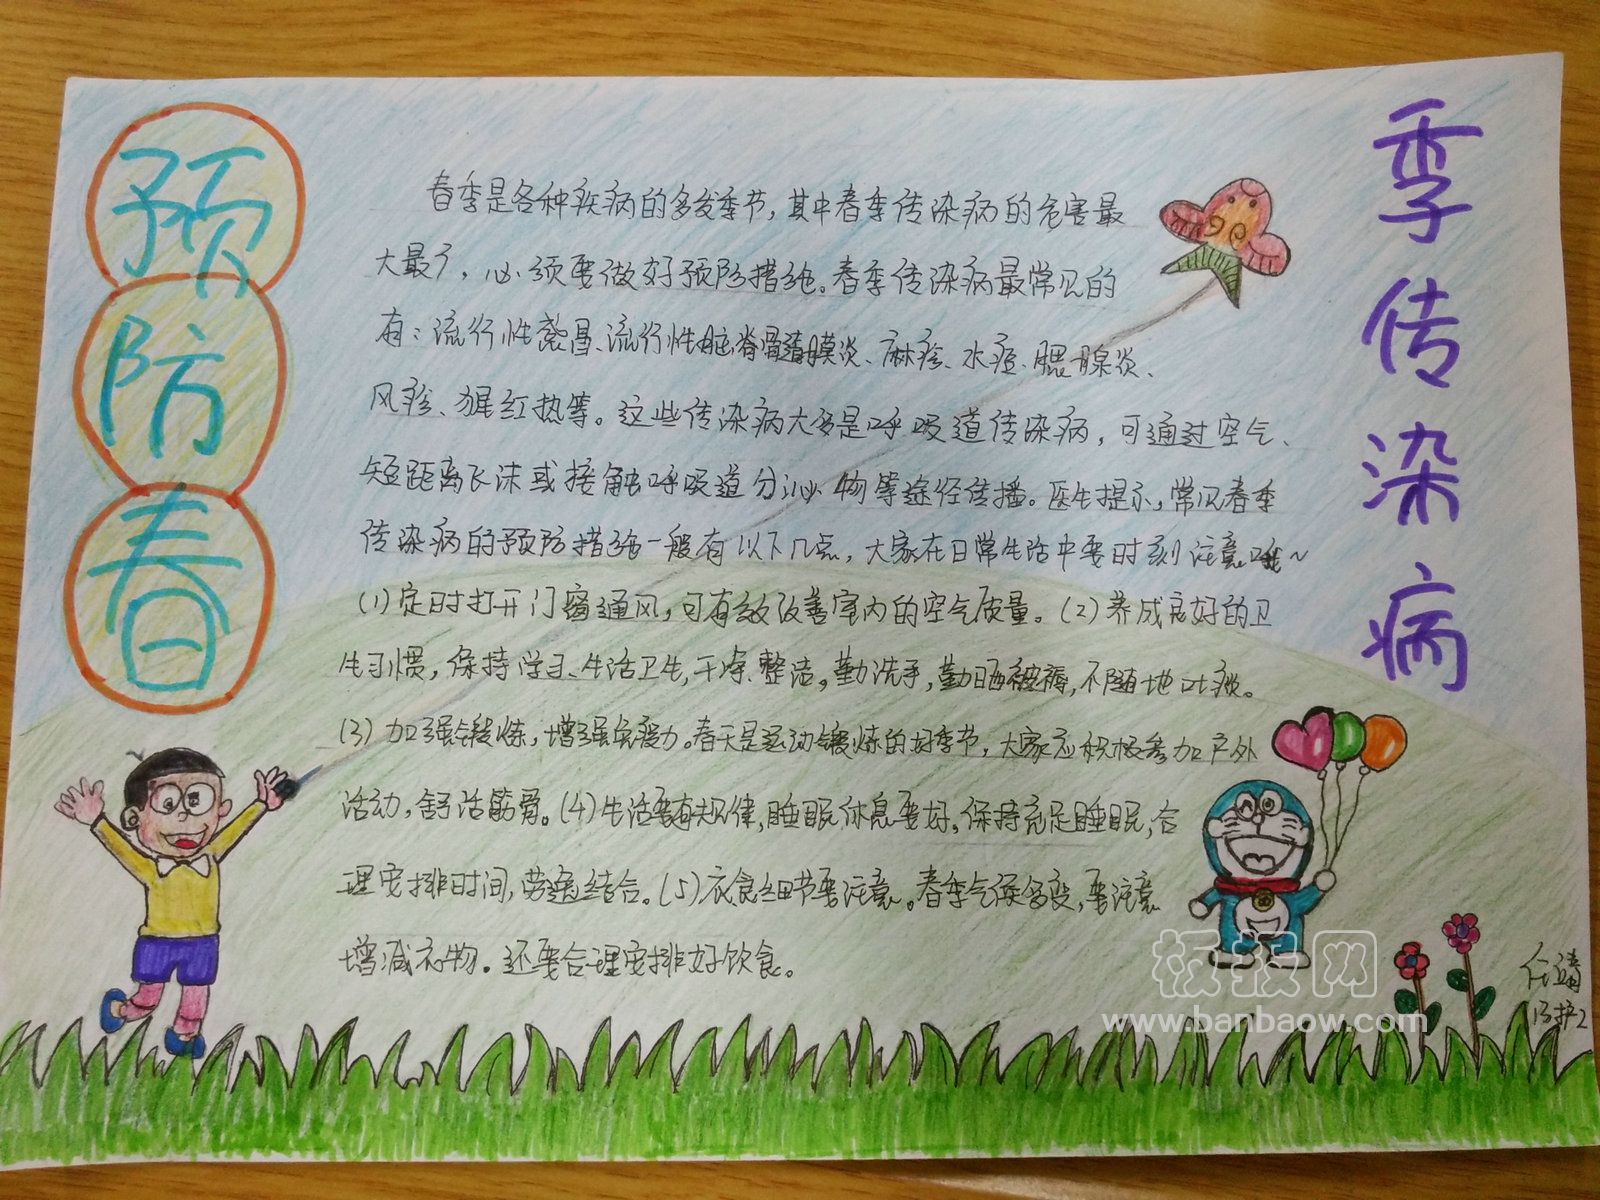 预防春
季传染病
春季是各种疾病的多发季节,其中春季传染病的危害最
大最广,必须要做好预防措施。春季传染病最常见的
有:流行性感冒、流行性脑脊髓膜炎、麻疹、水痘、腮腺炎、
风疹、猩红热等。这些传染病大多是呼吸道传染病,可通过空气、
短距离飞沫或接触呼吸道分泌物等途径传播。医生提示,常见春季
传染病的预防措施一般有以下几点,大家在日常生活中要时刻注意哦~
(1)定时打开门窗通风,可有效改善室内的空气质量。(2)养成良好的卫
生习惯,保持学习、生活卫生,干净、整洁。勤洗手,勤晒被褥,不随地吐痰。
(3)加强锻炼,增强免疫力。春天是运动锻炼的好季节,大家应积极参加户外
活动,舒活筋骨。(4)生活要有规律,睡眠休息要好。保持充足睡眠,合
理安排时间,劳逸结合。(5)衣食细节要注意。春季气候多变,要注意
增减衣物。还要合理安排好饮食。
板报网
www.banbaow.com
13护2